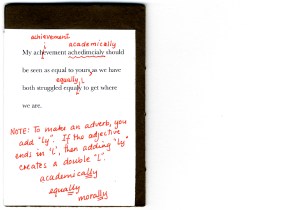 achievement
academically
My achievement achedimcialy should
be seen as equal to yours as we have
equally
both struggled equaly to get where
we are.
NOTE: To make an adverb, you
add "ly". If the adjective
ends in 'l', then adding "ly"
creates a double "l".
academically
equally
morally